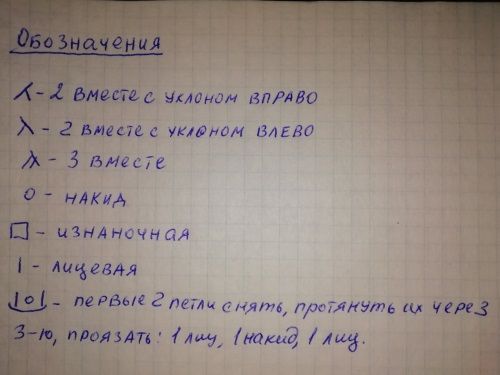 Обозначения
⅄ - 2 вместе с уклоном вправо
λ - 2 вместе с уклоном влево
⅄ - 3 вместе
О - накид
□ - изнаночная
| - лицевая
|o| - первые 2 петли снять, протянуть их через
3-ю, проязать: 1 лиц, 1 накид, 1 лиц.